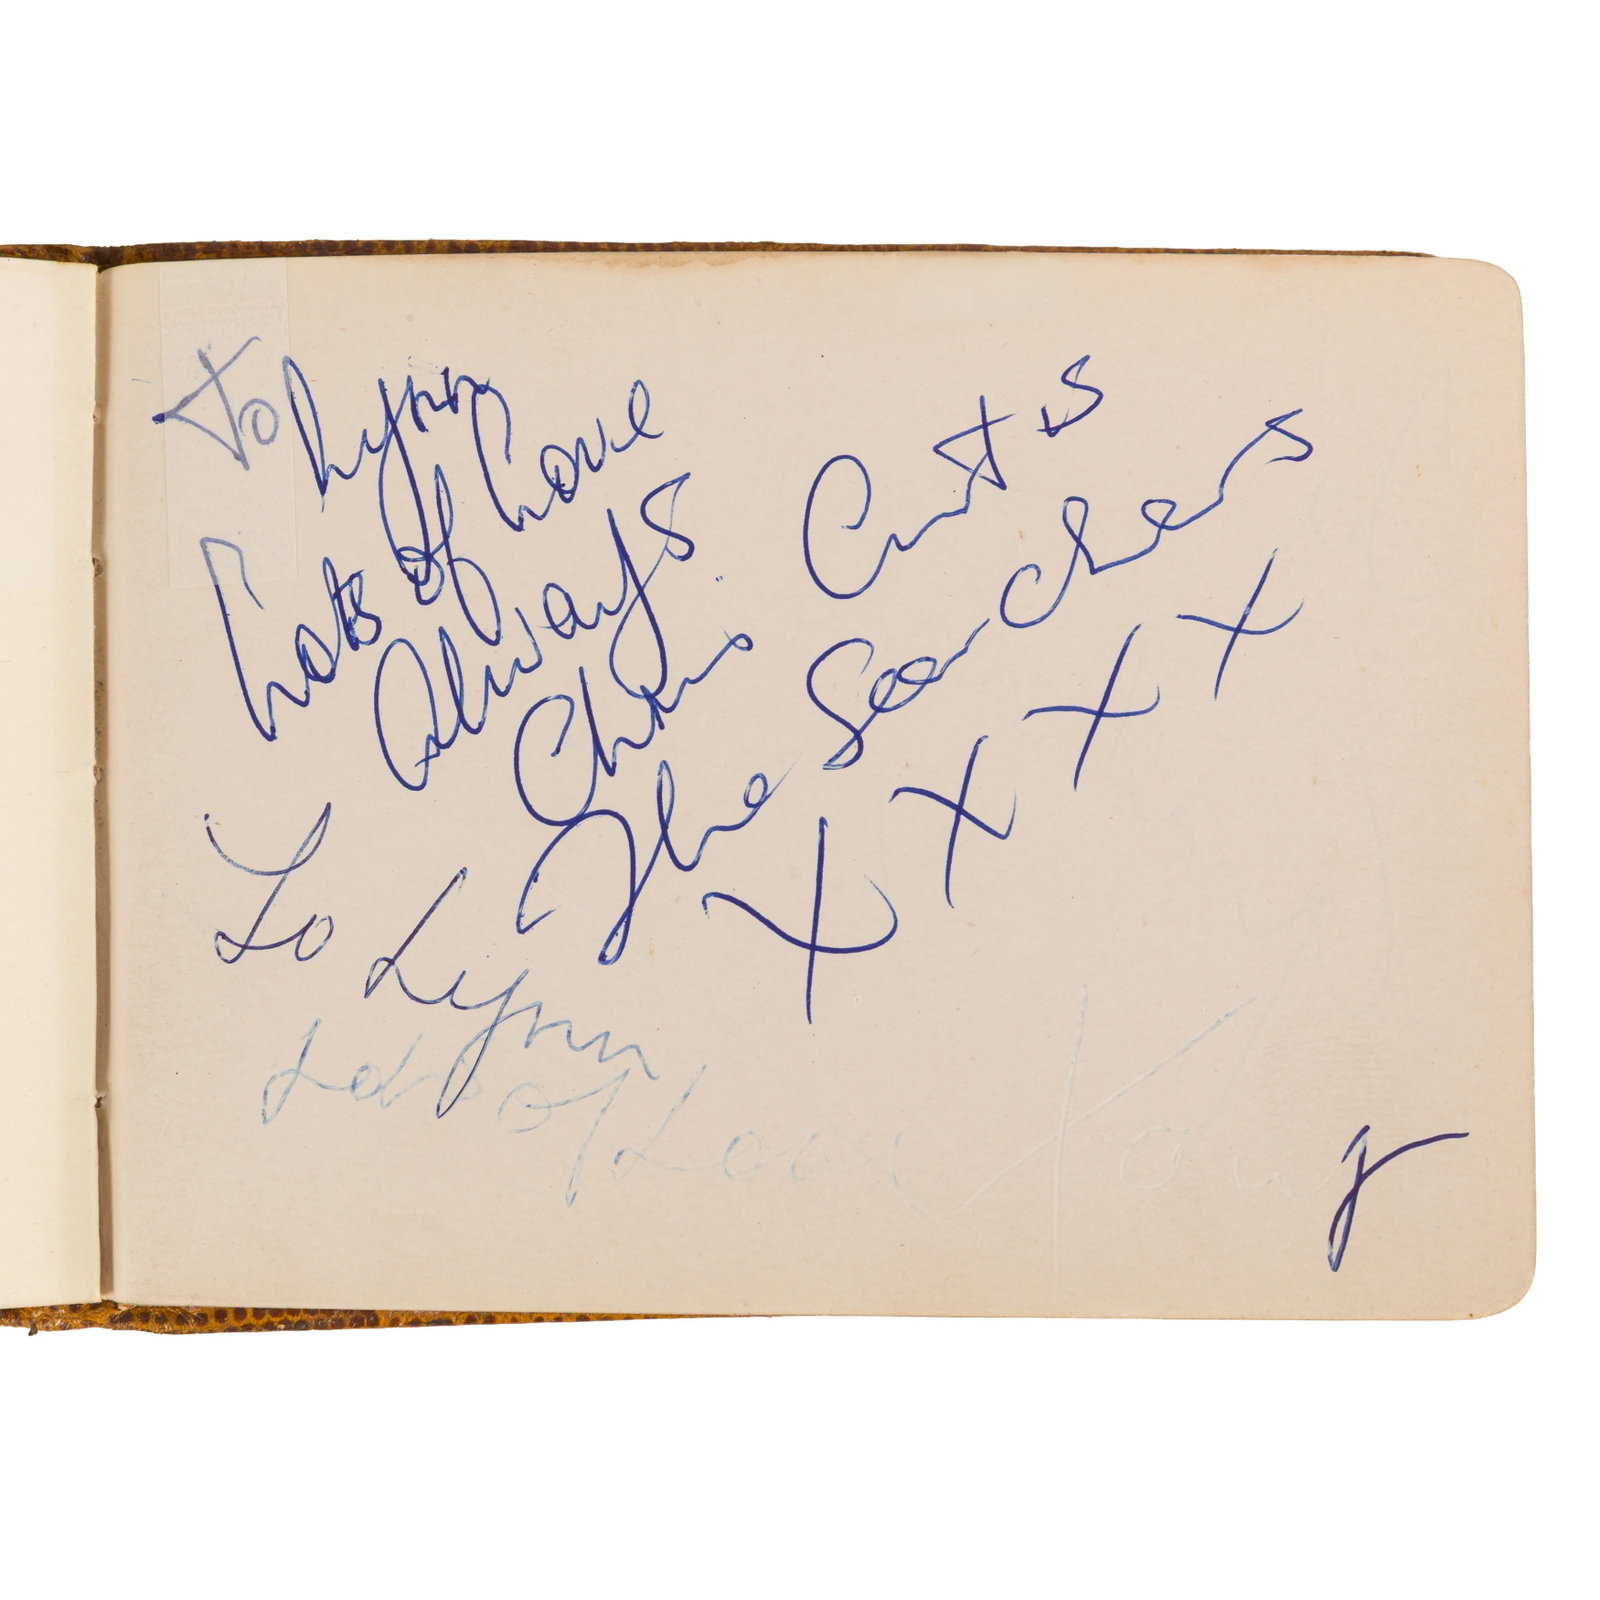 To Lynn
Lots of Love
Always
Chris Curtis
The Searchers
X X X X
To Lynn
Lots of Love
Tony